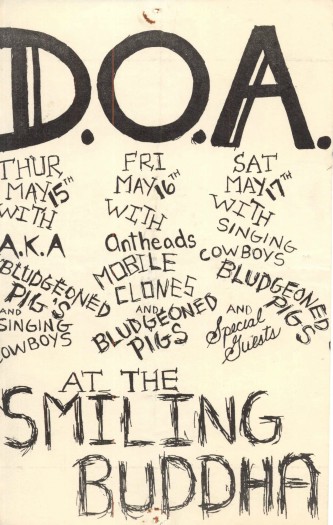 D.O.A.
THUR
MAY 15TH
WITH
A.K.A
BLUDGEONED
PIG'S
AND
SINGING
COWBOYS
FRI
MAY 16TH
WITH
antheads
MOBILE
CLONES
AND
BLUDGEONED
PIGS
SAT
MAY 17TH
WITH
SINGING
COWBOYS
BLUDGEONED
PIGS
AND
Special
Guests
AT THE
SMILING
BUDDHA